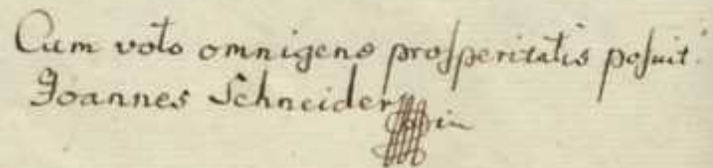 Cum voto omnigenæ proſperitatis poſuit.
Joannes Schneider